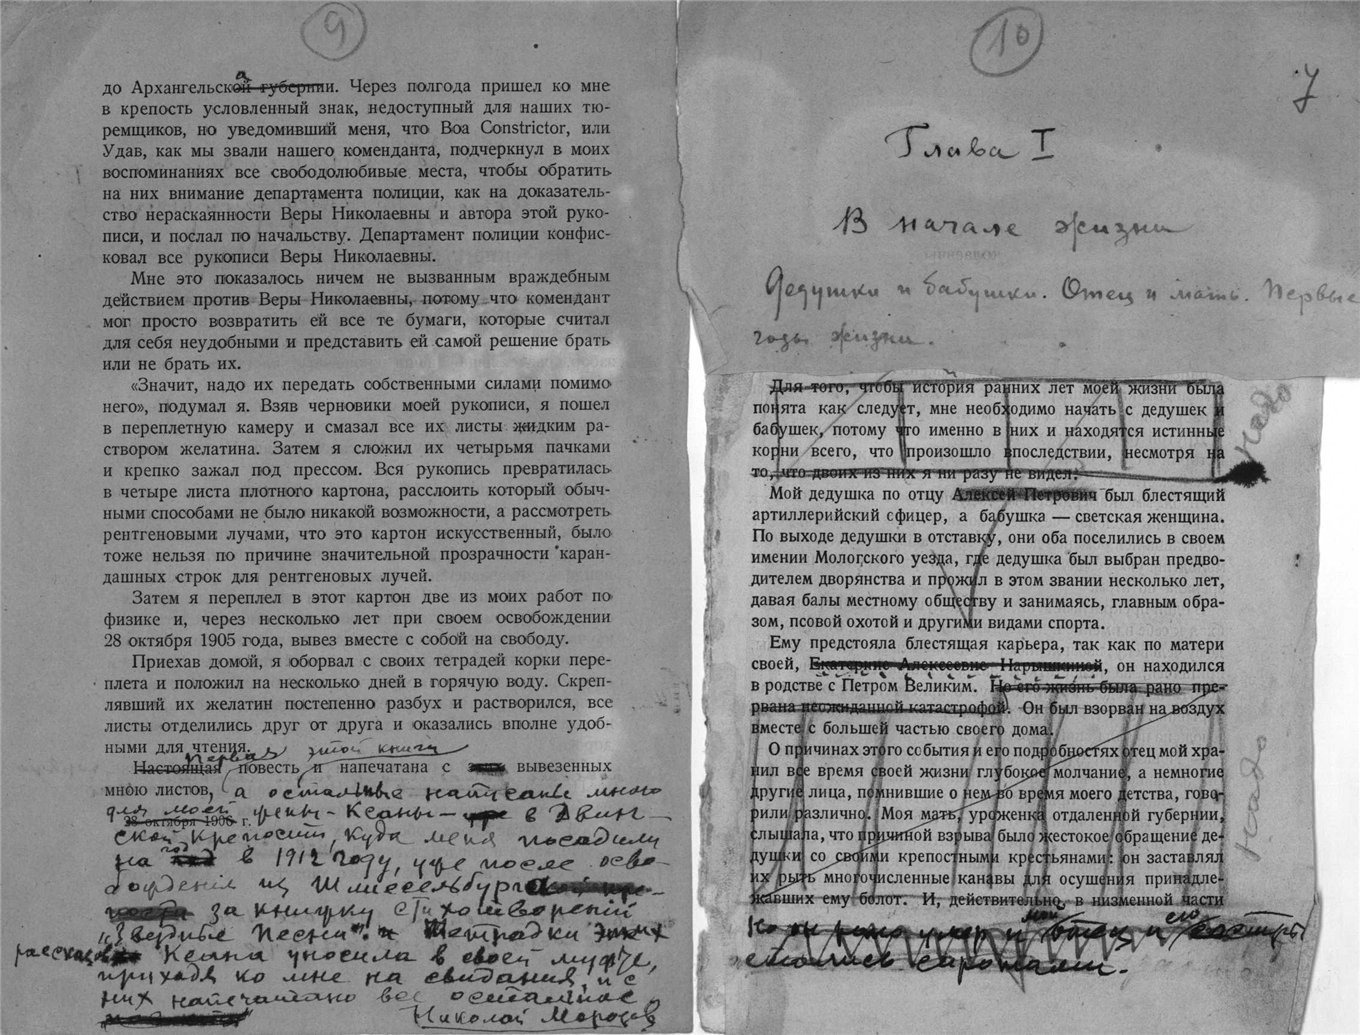 9
до Архангельской губернии. Через полгода пришел ко мне
в крепость условленный знак, недоступный для наших тю-
ремщиков, но уведомивший меня, что Boa Constrictor, или
Удав, как мы звали нашего коменданта, подчеркнул в моих
воспоминаниях все свободолюбивые места, чтобы обратить
на них внимание департамента полиции, как на доказатель-
ство нераскаянности Веры Николаевны и автора этой руко-
писи, и послал по начальству. Департамент полиции конфис-
ковал все рукописи Веры Николаевны.
Мне это показалось ничем не вызванным враждебным
действием против Веры Николаевны, потому что комендант
мог просто возвратить ей все те бумаги, которые считал
для себя неудобными и представить ей самой решение брать
или не брать их.
«Значит, надо их передать собственными силами помимо
него», подумал я. Взяв черновики моей рукописи, я пошел
в переплетную камеру и смазал все их листы жидким ра-
створом желатина. Затем я сложил их четырьмя пачками
и крепко зажал под прессом. Вся рукопись превратилась
в четыре листа плотного картона, расслоить который обыч-
ными способами не было никакой возможности, а рассмотреть
рентгеновыми лучами, что это картон искусственный, было
тоже нельзя по причине значительной прозрачности каран-
дашных строк для рентгеновых лучей.
Затем я переплел в этот картон две из моих работ по
физике и, через несколько лет при своем освобождении
28 октября 1905 года, вывез вместе с собой на свободу.
Приехав домой, я оборвал с своих тетрадей корки пере-
плета и положил на несколько дней в горячую воду. Скреп-
лявший их желатин постепенно разбух и растворился, все
листы отделились друг от друга и оказались вполне удоб-
ными для чтения.
Первая этой книги
Настоящая повесть и напечатана с вывезенных
мною листов, а остальные написаны мною
для моей жены Ксаны в Двин-
28 октября 1906 г.
ской крепости, куда меня посадили
на год в 1912 году, уже после осво-
бождения из Шлиссельбурга
за книжку стихотворений
"Звездные Песни". Тетрадки этих
рассказов Ксана уносила в своей муфте,
приходя ко мне на свидания, и с
них напечатано все остальное
Николай Морозов
10
7
Глава I
В начале жизни
Дедушки и бабушки. Отец и мать. Первые
годы жизни.
Для того, чтобы история ранних лет моей жизни была
понята как следует, мне необходимо начать с дедушек и
бабушек, потому что именно в них и находятся истинные
корни всего, что произошло впоследствии, несмотря на
то, что двоих из них я ни разу не видел.
надо
Мой дедушка по отцу Алексей Петрович был блестящий
артиллерийский офицер, а бабушка — светская женщина.
По выходе дедушки в отставку, они оба поселились в своем
имении Мологского уезда, где дедушка был выбран предво-
дителем дворянства и прожил в этом звании несколько лет,
давая балы местному обществу и занимаясь, главным обра-
зом, псовой охотой и другими видами спорта.
Ему предстояла блестящая карьера, так как по матери
своей, Екатерине Алексеевне Нарышкиной, он находился
в родстве с Петром Великим. Но его жизнь была рано пре-
рвана неожиданной катастрофой. Он был взорван на воздух
вместе с большей частью своего дома.
О причинах этого события и его подробностях отец мой хра-
нил все время своей жизни глубокое молчание, а немногие
другие лица, помнившие о нем во время моего детства, гово-
рили различно. Моя мать, уроженка отдаленной губернии,
слышала, что причиной взрыва было жестокое обращение де-
душки со своими крепостными крестьянами: он заставлял
их рыть многочисленные канавы для осушения принадле-
жавших ему болот. И, действительно, в низменной части
надо
Но он рано умер и мой отец и его сестры
остались сиротами.